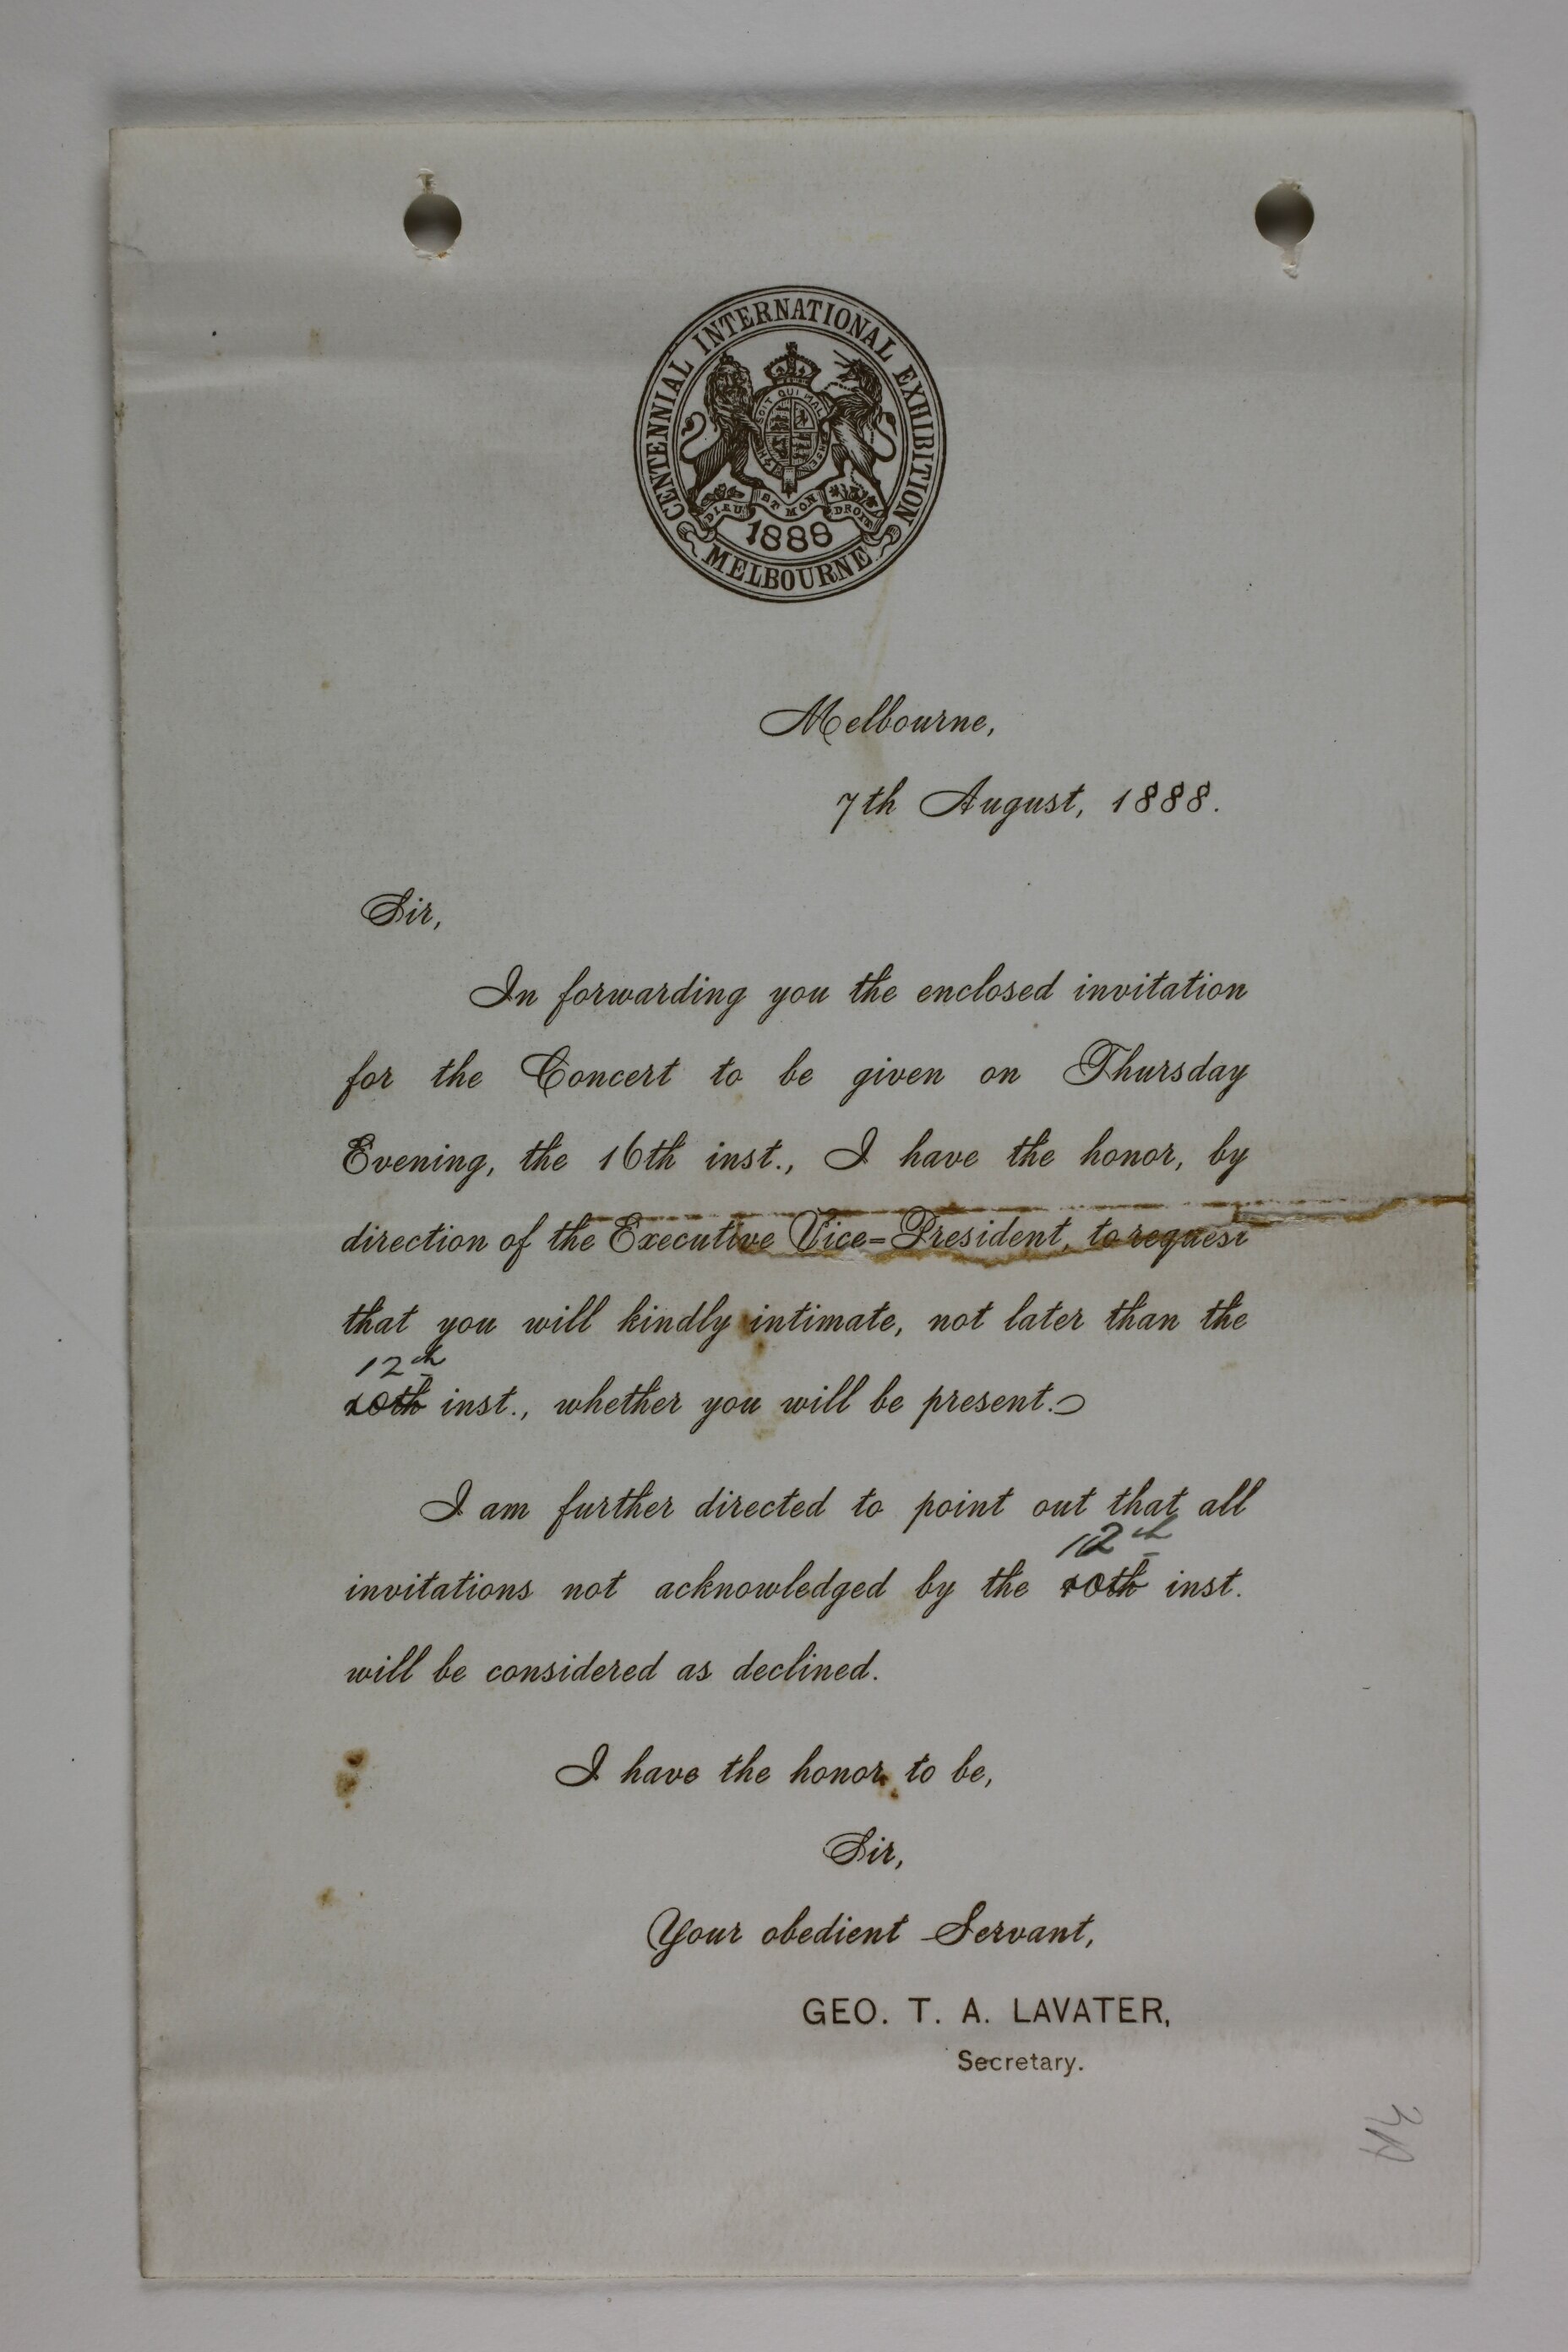 CENTENNIAL INTERNATIONAL EXHIBITION
SOIT QUI MAL
DIEU ET MON DROIT
1888
MELBOURNE
Melbourne,
7th August, 1888.
Sir,
In forwarding you the enclosed invitation
for the Concert to be given on Thursday
Evening, the 16th inst., I have the honor, by
direction of the Executive Vice-President, to request
that you will kindly intimate, not later than the
12th
10th inst., whether you will be present.
I am further directed to point out that all
12th
invitations not acknowledged by the 10th inst.
will be considered as declined.
I have the honor to be,
Sir,
Your obedient Servant,
GEO. T. A. LAVATER,
Secretary.